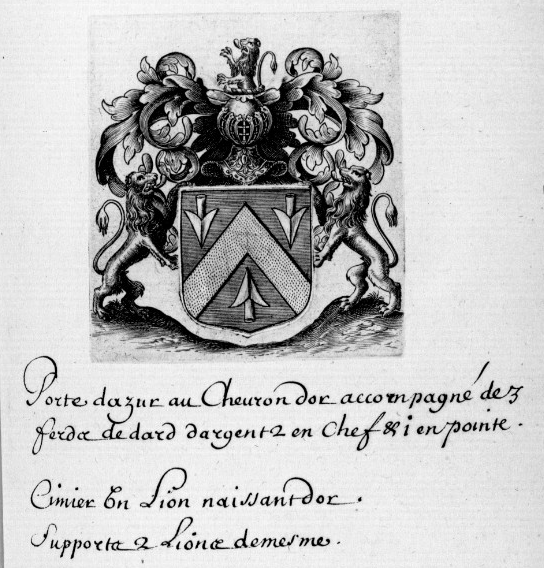 Porte dazur au Cheuron dor accompagné de 3
ferds de dard dargent 2 en Chef & 1 en pointe.
Cimier Vn Lion naissant dor.
Supports 2 Lions demesme.